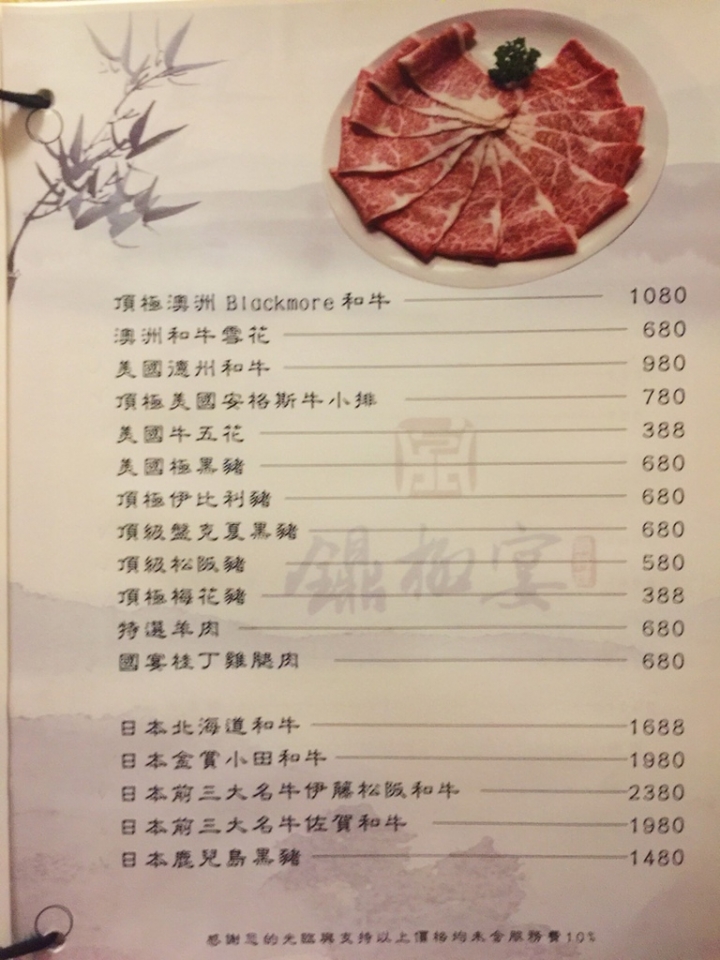 頂極澳洲Blackmore和牛 1080
澳洲和牛雪花 680
美國德州和牛 980
頂極美國安格斯牛小排 780
美國牛五花 388
美國極黑豬 680
頂極伊比利豬 680
頂級盤克夏黑豬 680
頂級松阪豬 580
頂極梅花豬 388
特選羊肉 680
國宴桂丁雞腿肉 680
鼎極宴
日本北海道和牛 1688
日本金賞小田和牛 1980
日本前三大名牛伊藤松阪和牛 2380
日本前三大名牛佐賀和牛 1980
日本鹿兒島黑豬 1480
感謝您的光臨與支持以上價格均未含服務費10%